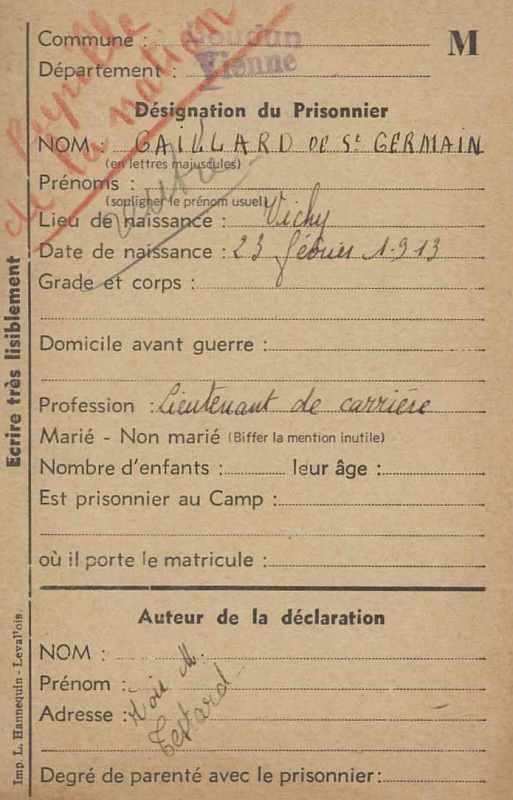 Commune : Loudun
Département : Vienne
M
Pupille
de la nation
Désignation du Prisonnier
NOM : GAILLARD DE St GERMAIN
(en lettres majuscules)
Prénoms :
(souligner le prénom usuel)
Lieu de naissance : Vichy
Date de naissance : 23 février 1913
Grade et corps :
Domicile avant guerre :
Profession : Lieutenant de carrière
Marié - Non marié (Biffer la mention inutile)
Nombre d'enfants : leur âge :
Est prisonnier au Camp :
où il porte le matricule :
Auteur de la déclaration
NOM :
Prénom :
Adresse :
Voir M.
Testard
Degré de parenté avec le prisonnier :
Ecrire très lisiblement
Imp. L. Hannequin - Leval'ois.